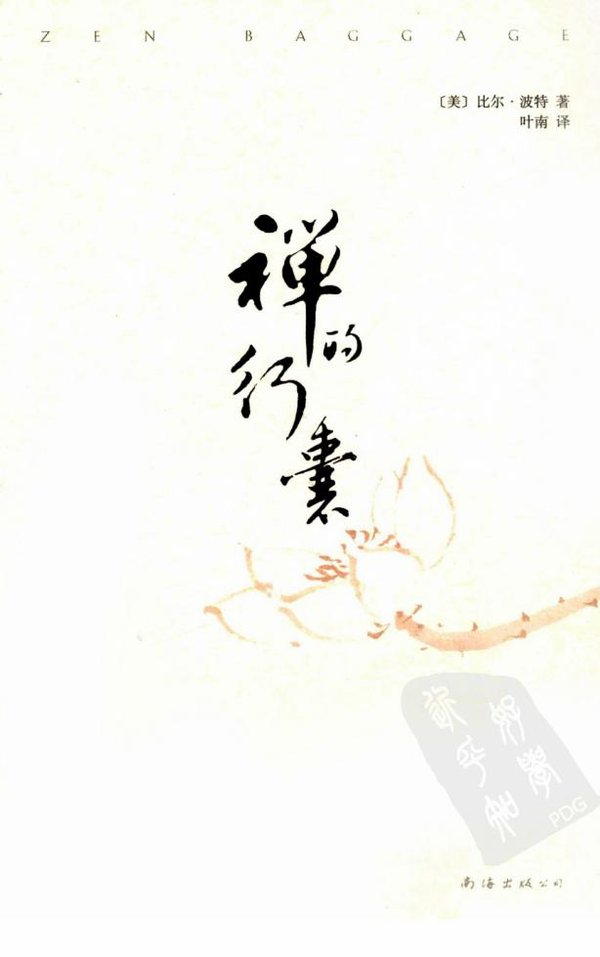 ZEN BAGGAGE
〔美〕比尔·波特 著
叶南 译
禅的
行囊
好学
近乎知
PDG
南海出版公司